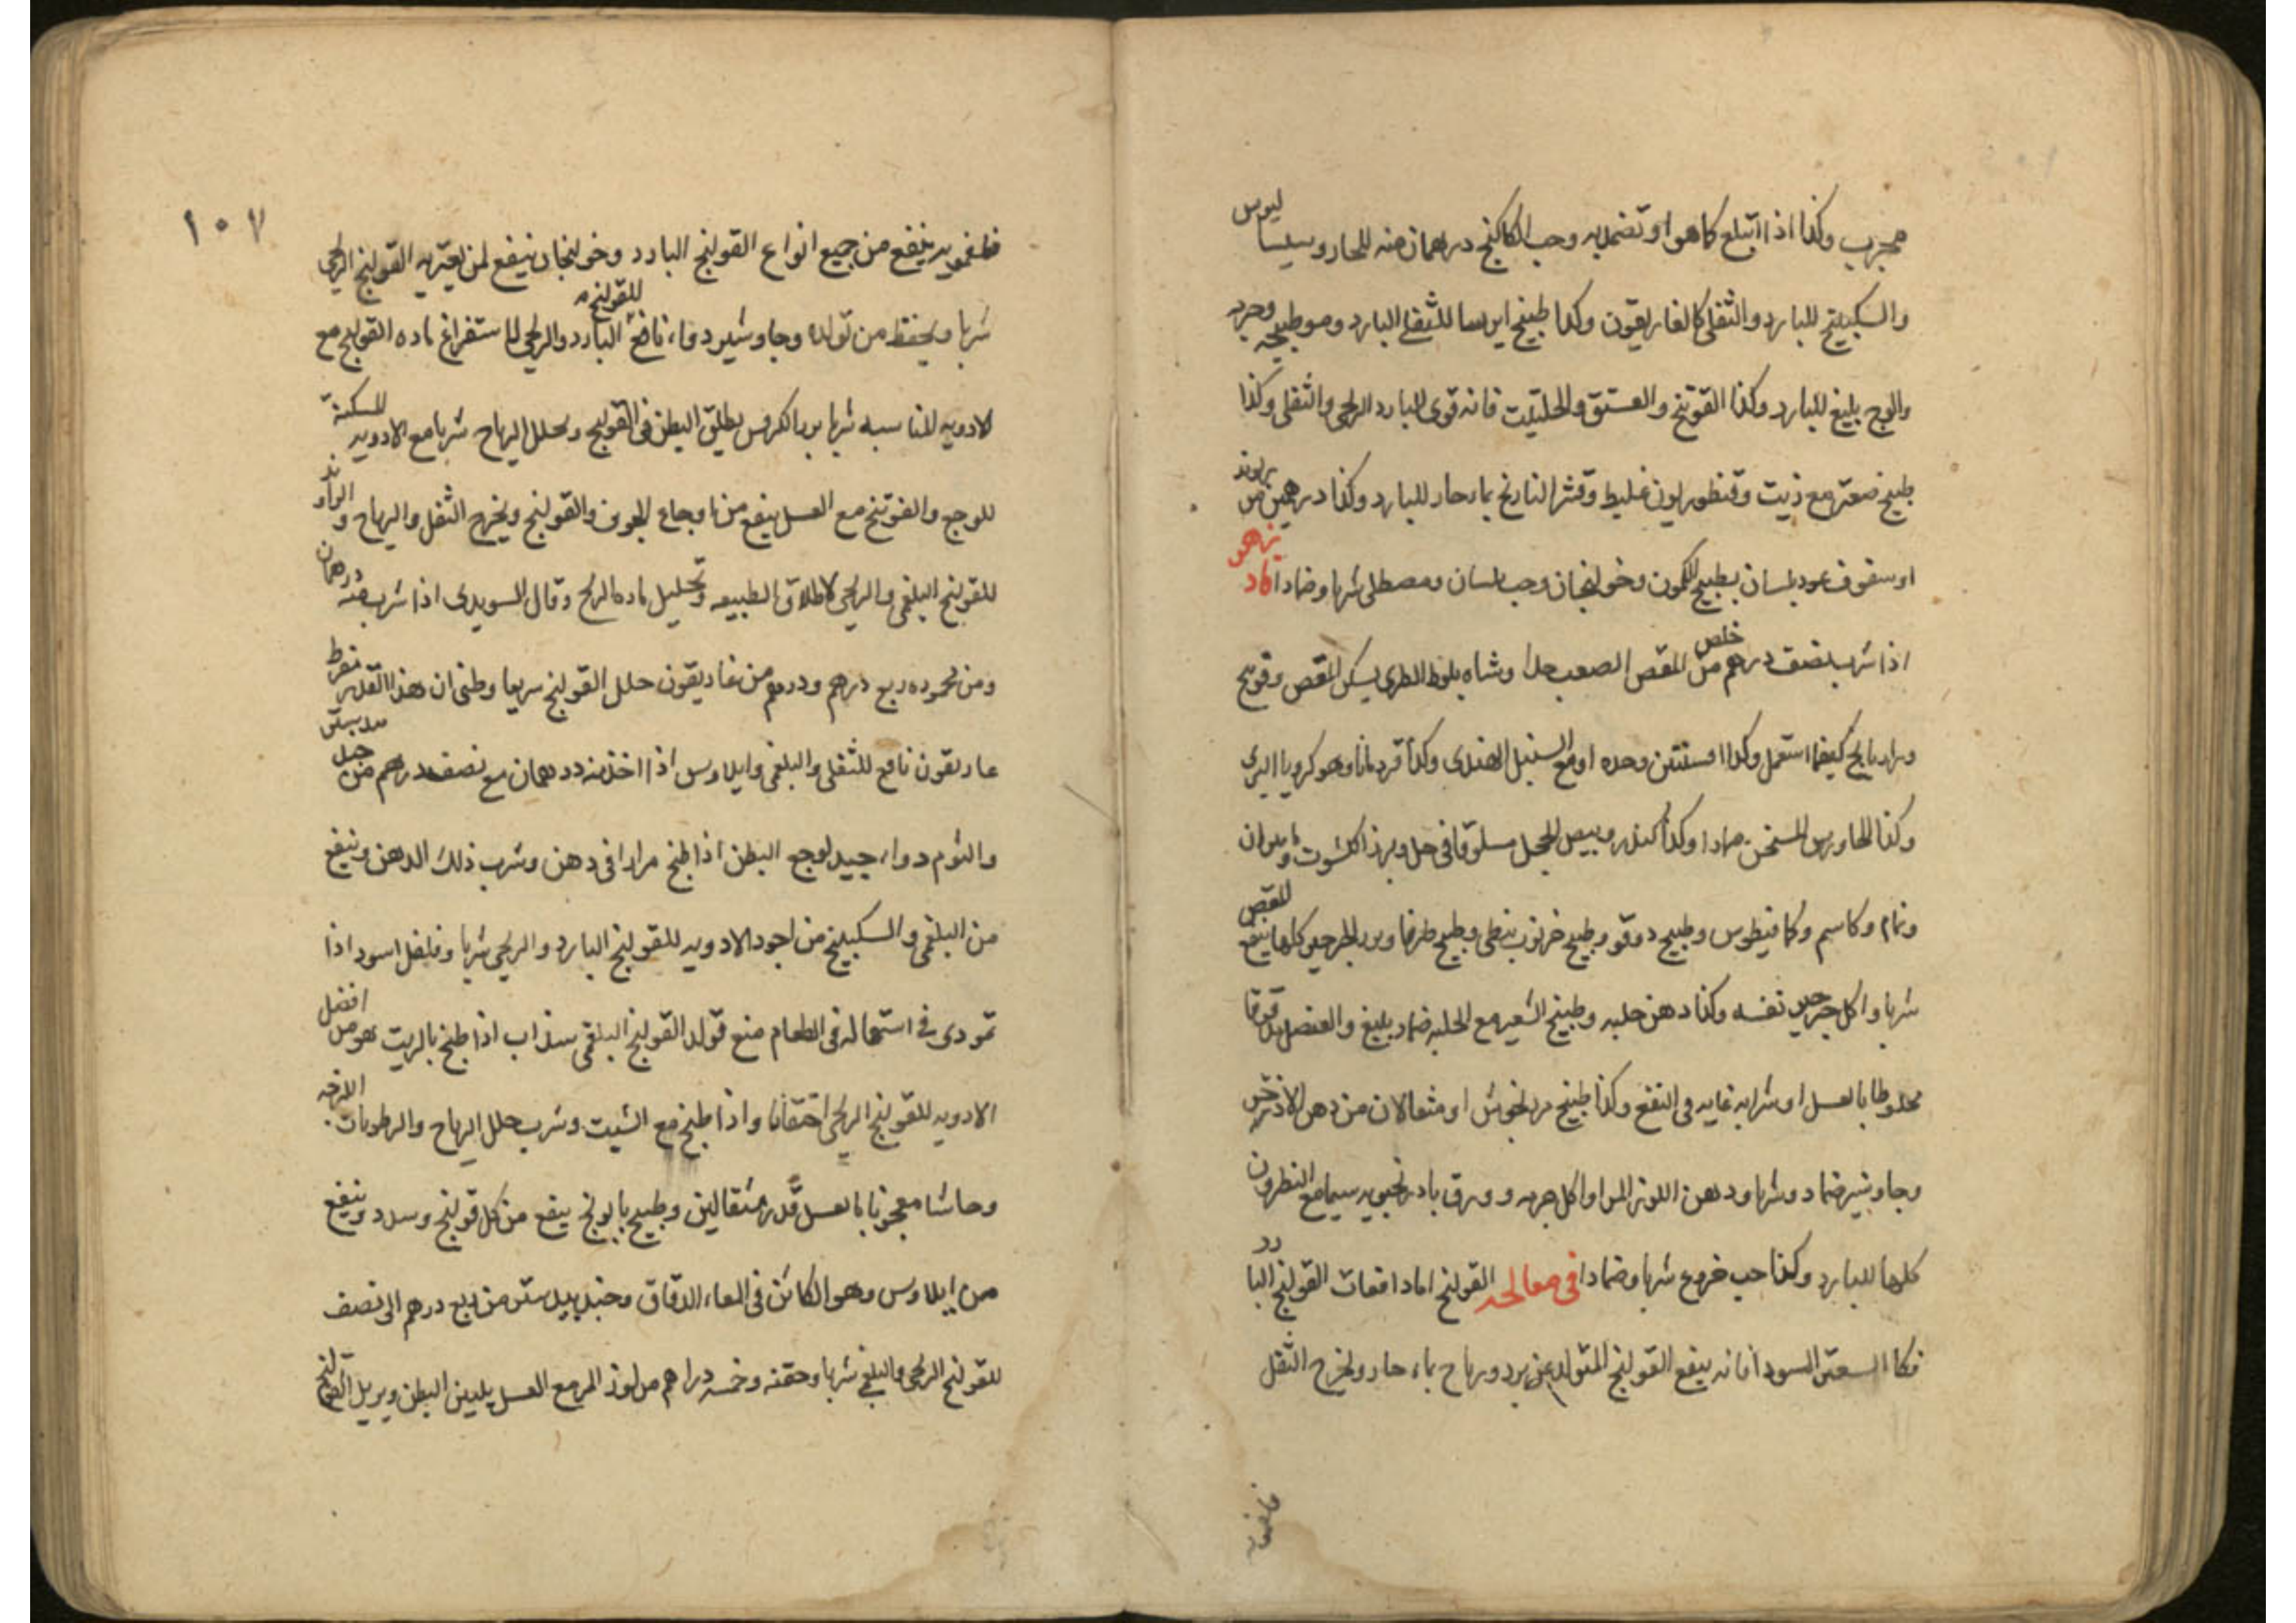 مجرب وكذا اذا ابتلع كما هو او تضمد به وحب الكاكنج درهمان منه للحار وسيساليوس
والسكبينج للبارد والثفلى كالغاريقون وكذا طبيخ ايرسا للثفلى البارد وهو طبيخه وحده
والوج بليغ للبارد وكذا الفوتنج والحلتيت فانه قوى للبارد الريحى والثفلى وكذا
طبيخ صعتر مع زيت وقنطوريون غليظ وقشر النارنج بماء حار للبارد وكذا درهمين من
او سفوف عود بلسان بطبيخ الكمون وخولنجان وحب بلسان ومصطكى شربا وضمادا
اذا شرب نصف درهم خلص من المغص الصعب جدا وشاه بلوط الطرى يسكن المغص
ورازيانج كيفما استعمل وكذا افسنتين وحده او مع السنبل الهندى وكذا قردمانا وهو كرويا البرى
وكذا الجاورس المسخن ضمادا وكذا كندر وبيض الحجل مسلوقا فى خل وبزر اكشوت
ونمام وكاشم وكمافيطوس وطبيخ دوقو وطبيخ خرنوب نبطى وطبيخ طرفا وبزر الجرجير كلها ينفع للمغص
شربا واكل جرجير نفسه وكذا دهن حلبه وطبيخ الشعير مع الحلبه ضماد بليغ والعنصل
مخلوطا بالعسل او شرابه غايه فى النفع وكذا طبيخ مرزنجوش او مثقالان من دهن الاذخر
وجاوشير ضماد وشربا ودهن اللوز المر او اكل وورق بادرنجبويه سيما مع النطرون
كلها للبارد وكذا حب خروع شربا وضمادا فى معالجة القولنج اما دافعات القولنج البارد
فكا السعتر السود فانه ينفع القولنج المتولد عن برد ورياح بماء حار ويخرج الثفل
١٠٧
ينفع من جميع انواع القولنج البارد وخولنجان ينفع لمن يعتريه القولنج الريحى
شربا ويحفظ من تولده وجاوشير دواء نافع للقولنج البارد والريحى لاستفراغ ماده القولنج مع
الادويه المناسبه شربا بزر الكرفس يطلق البطن فى القولنج ويحلل الرياح شربا مع الادويه المسكنة
للوجع والفوتنج مع العسل ينفع من اوجاع الجوف والقولنج ويخرج الثفل والرياح والراوند
للقولنج البلغمى والريحى لاطلاق الطبيعه وتحليل ماده الريح وقال السويدى اذا شرب منه درهمان
ومن محموده ربع درهم ودرهم من غاريقون حلل القولنج سريعا وظنى ان هذا القدر مفرط
غاريقون نافع للثفلى والبلغمى وايلاوس اذا اخذ منه درهمان مع نصف درهم من جندبيدستر
والثوم دواء جيد لوجع البطن اذا طبخ مرارا فى دهن وشرب ذلك الدهن وينفع
من البلغمى والسكبينج من اجود الادويه للقولنج البارد والريحى شربا وفلفل اسود اذا
تمودى فى استعماله فى الطعام منع تولد القولنج البلغمى سذاب اذا طبخ بالزيت هو من افضل
الادويه للقولنج الريحى احتقانا واذا طبخ مع الشبت وشرب حلل الرياح والرطوبات اللزجه
وحاشا معجونا بالعسل قدر مثقالين وطبيخ بابونج ينفع من كل قولنج وسدد وينفع
من ايلاوس وهو الكائن فى المعاء الدقاق وجندبيدستر من ربع درهم الى نصف
للقولنج الريحى والبلغمى شربا وحقنه وخمسه دراهم من لوز المر مع العسل يلين البطن ويزيل القولنج